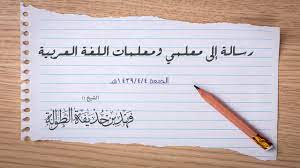 رسالة إلى معلمي ومعلمات اللغة العربية
الجمعة ١٤٣٩/٤/٤هـ
الشيخ /
فهد بن حذيفة الطوالة